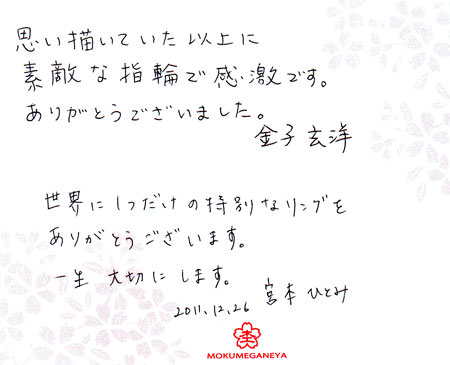 思い描いていた以上に
素敵な指輪で感激です。
ありがとうございました。
金子玄洋
世界に1つだけの特別なリングを
ありがとうございます。
一生大切にします。
2011.12.26 宮本ひとみ
MOKUMEGANEYA